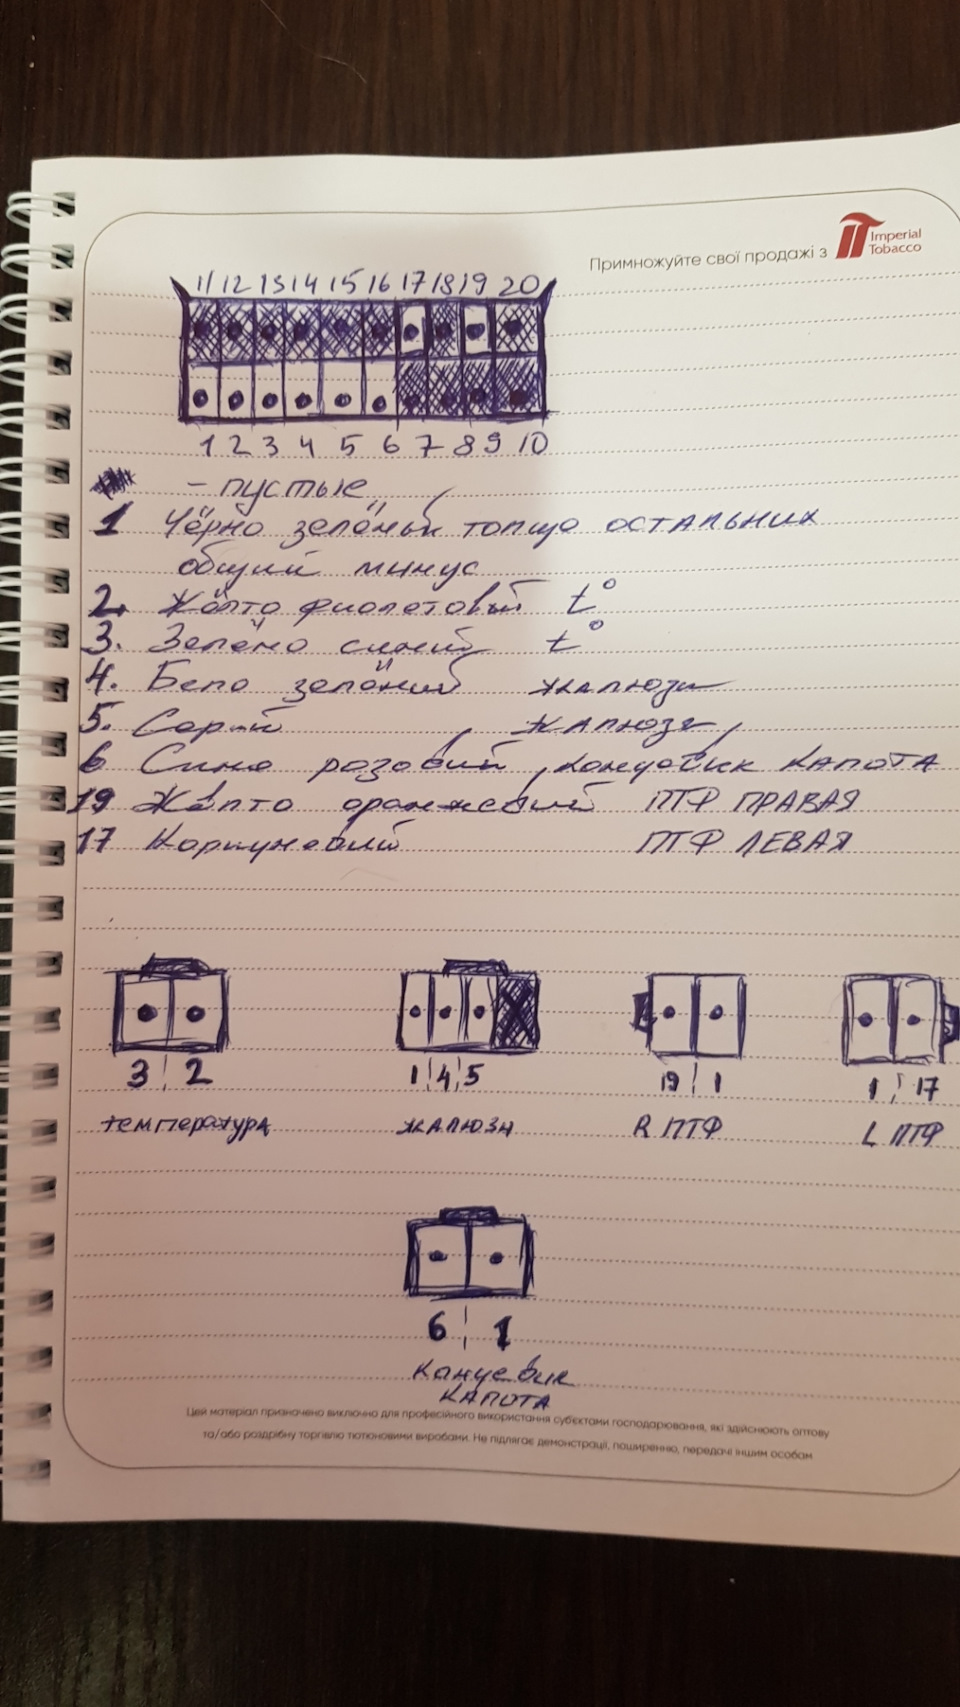 Примножуйте свої продажі з
Imperial
Tobacco
11 12 13 14 15 16 17 18 19 20
1 2 3 4 5 6 7 8 9 10
- пустые
1 Чёрно зелёный толще остальних
общий минус
2. Жёлто фиолетовый t°
3. Зелёно синий t°
4. Бело зелёний жалюзи
5. Серий жалюзи
6 Сине розовий, концевик КАПОТА
19 Жёлто оранжевий ПТФ ПРАВАЯ
17 Коричневий ПТФ ЛЕВАЯ
3 2
1 4 5
19 1
1 17
температура
жалюзи
R ПТФ
L ПТФ
6 1
Концевик
КАПОТА
Цей матеріал призначено виключно для професійного використання суб'єктами господарювання, які здійснюють оптову
та/або роздрібну торгівлю тютюновими виробами. Не підлягає демонстрації, поширенню, передачі іншим особам